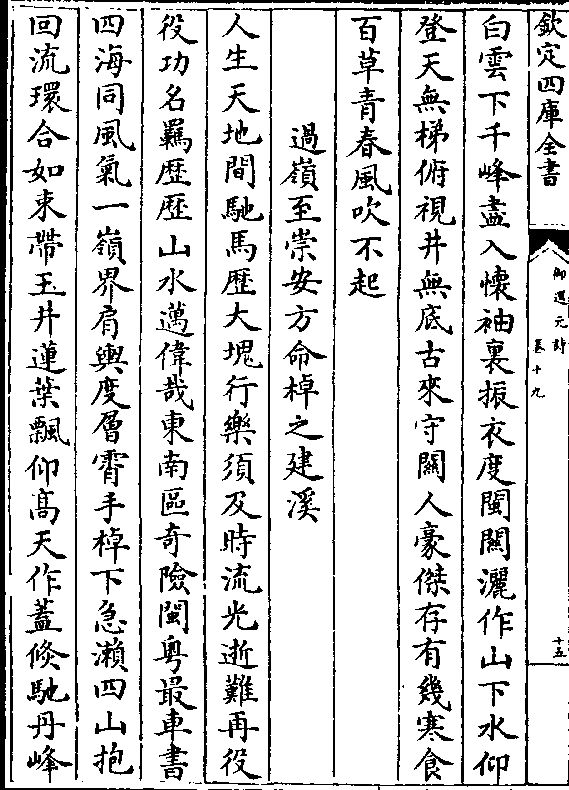 欽定四庫全書
御選元詩
卷十九
十五
白雲下千峰盡入懷袖裏振衣度閩關灑作山下水仰
登天無梯俯視井無底古來守關人豪傑存有幾寒食
百草青春風吹不起
過嶺至崇安方命棹之建溪
人生天地間馳馬歴大塊行樂須及時流光逝難再役
役功名羈歴歴山水邁偉哉東南區竒險閩粤最車書
四海同風氣一嶺界肩輿度層霄手棹下急瀨四山抱
回流環合如束帶玉井蓮葉飄仰髙天作蓋倐馳丹峰